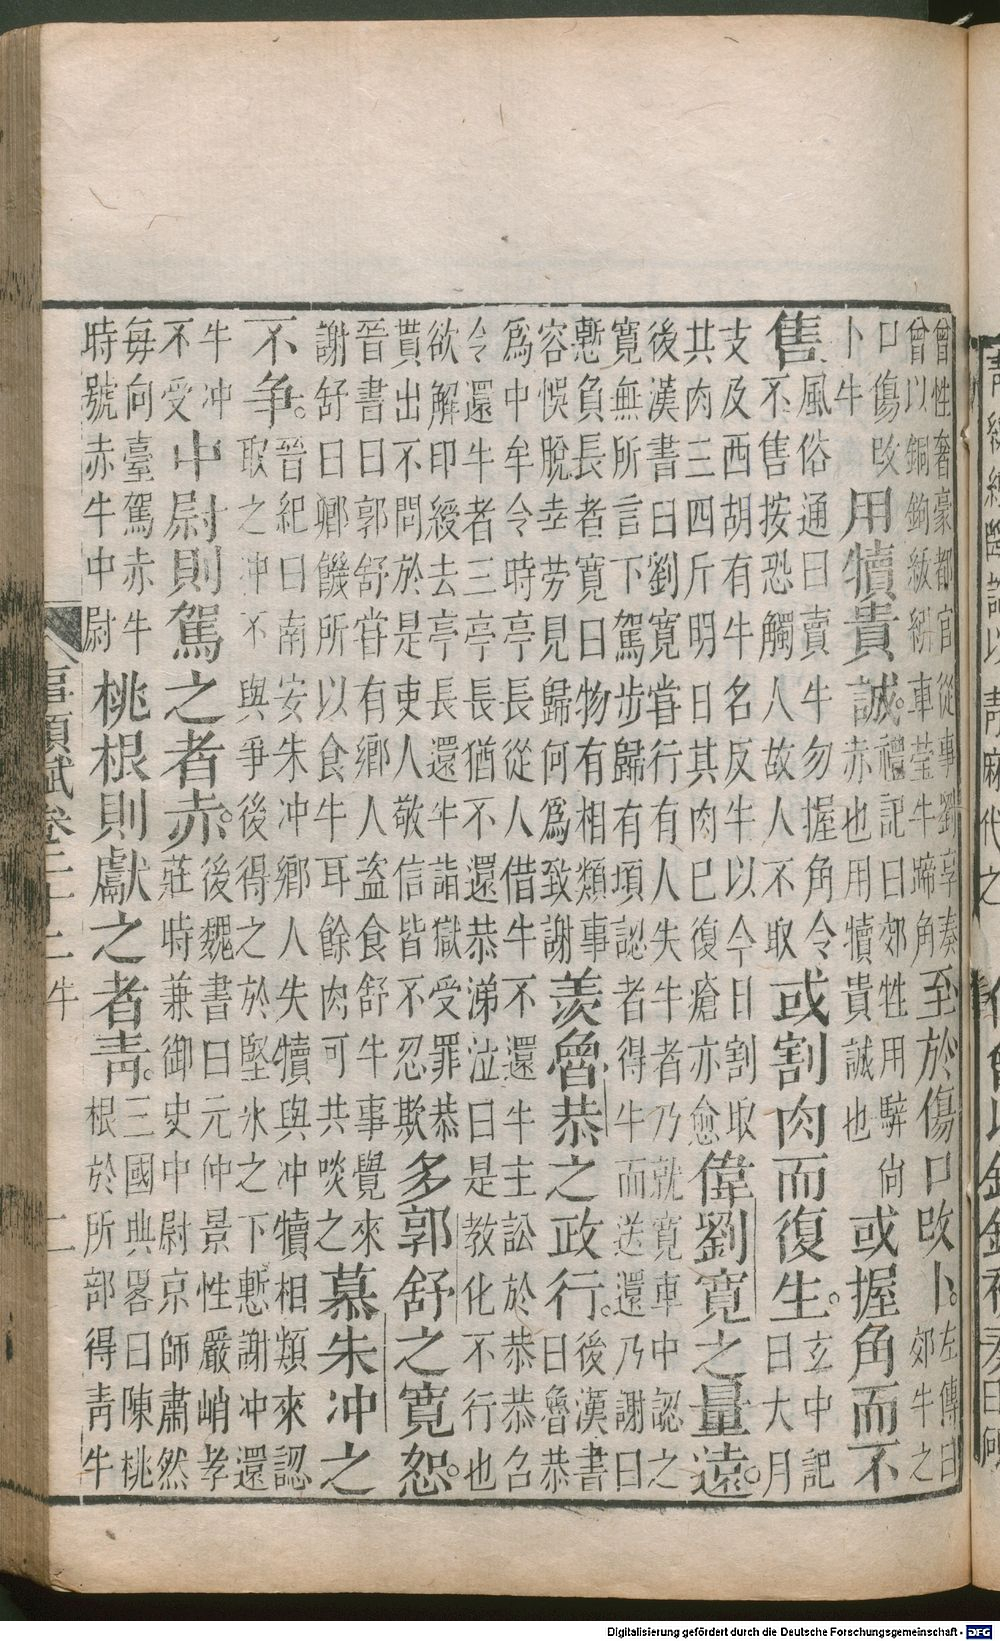 曾性奢豪都官從事劉享奏
曾以銅鉤紖車瑩牛蹄角
至於傷口改卜。
左傳曰
郊牛之
口傷改
卜牛
用犢貴誠。
禮記曰郊牲用騂尙
赤也用犢貴誠也
或握角而不
售。
風俗通曰賣牛勿握角令
不售按恐觸人故人不取
或割肉而復生。
玄中記
曰大月
支及西胡有牛名反牛以今日割取
共肉三四斤明日其肉巳復瘡亦愈
偉劉寛之量遠。
後漢書曰劉寛嘗行有人失牛者乃就寛車中認之
寛無所言下駕步歸有項認者得牛而送還乃謝曰
慙負長者寛曰物有相類事
容悞脫幸勞見歸何爲致謝
羨魯恭之政行。
後漢書
曰魯恭
爲中牟令時亭長從人借牛不還牛主訟於恭恭召
令還牛者三亭長猶不還恭涕泣曰是教化不行也
欲解印綬去亭長還牛詣獄受罪恭
貰出不問於是吏人敬信皆不忍欺
多郭舒之寛恕。
晉書曰郭舒嘗有鄉人盜食舒牛事覺來
謝舒曰卿饑所以食牛耳餘肉可共啖之
慕朱冲之
不爭。
晉紀曰南安朱冲鄉人失犢與冲犢相類來認
取之冲不與爭後得之於堅氷之下慙謝冲還
牛冲
不受
中尉則駕之者赤。
後魏書曰元仲景性嚴峭孝
莊時兼御史中尉京師肅然
每向臺駕赤牛
時號赤牛中尉
桃根則獻之者靑。
三國典畧曰陳桃
根於所部得靑牛
事類賦卷二十二 牛 二
Digitalisierung gefördert durch die Deutsche Forschungsgemeinschaft - DFG